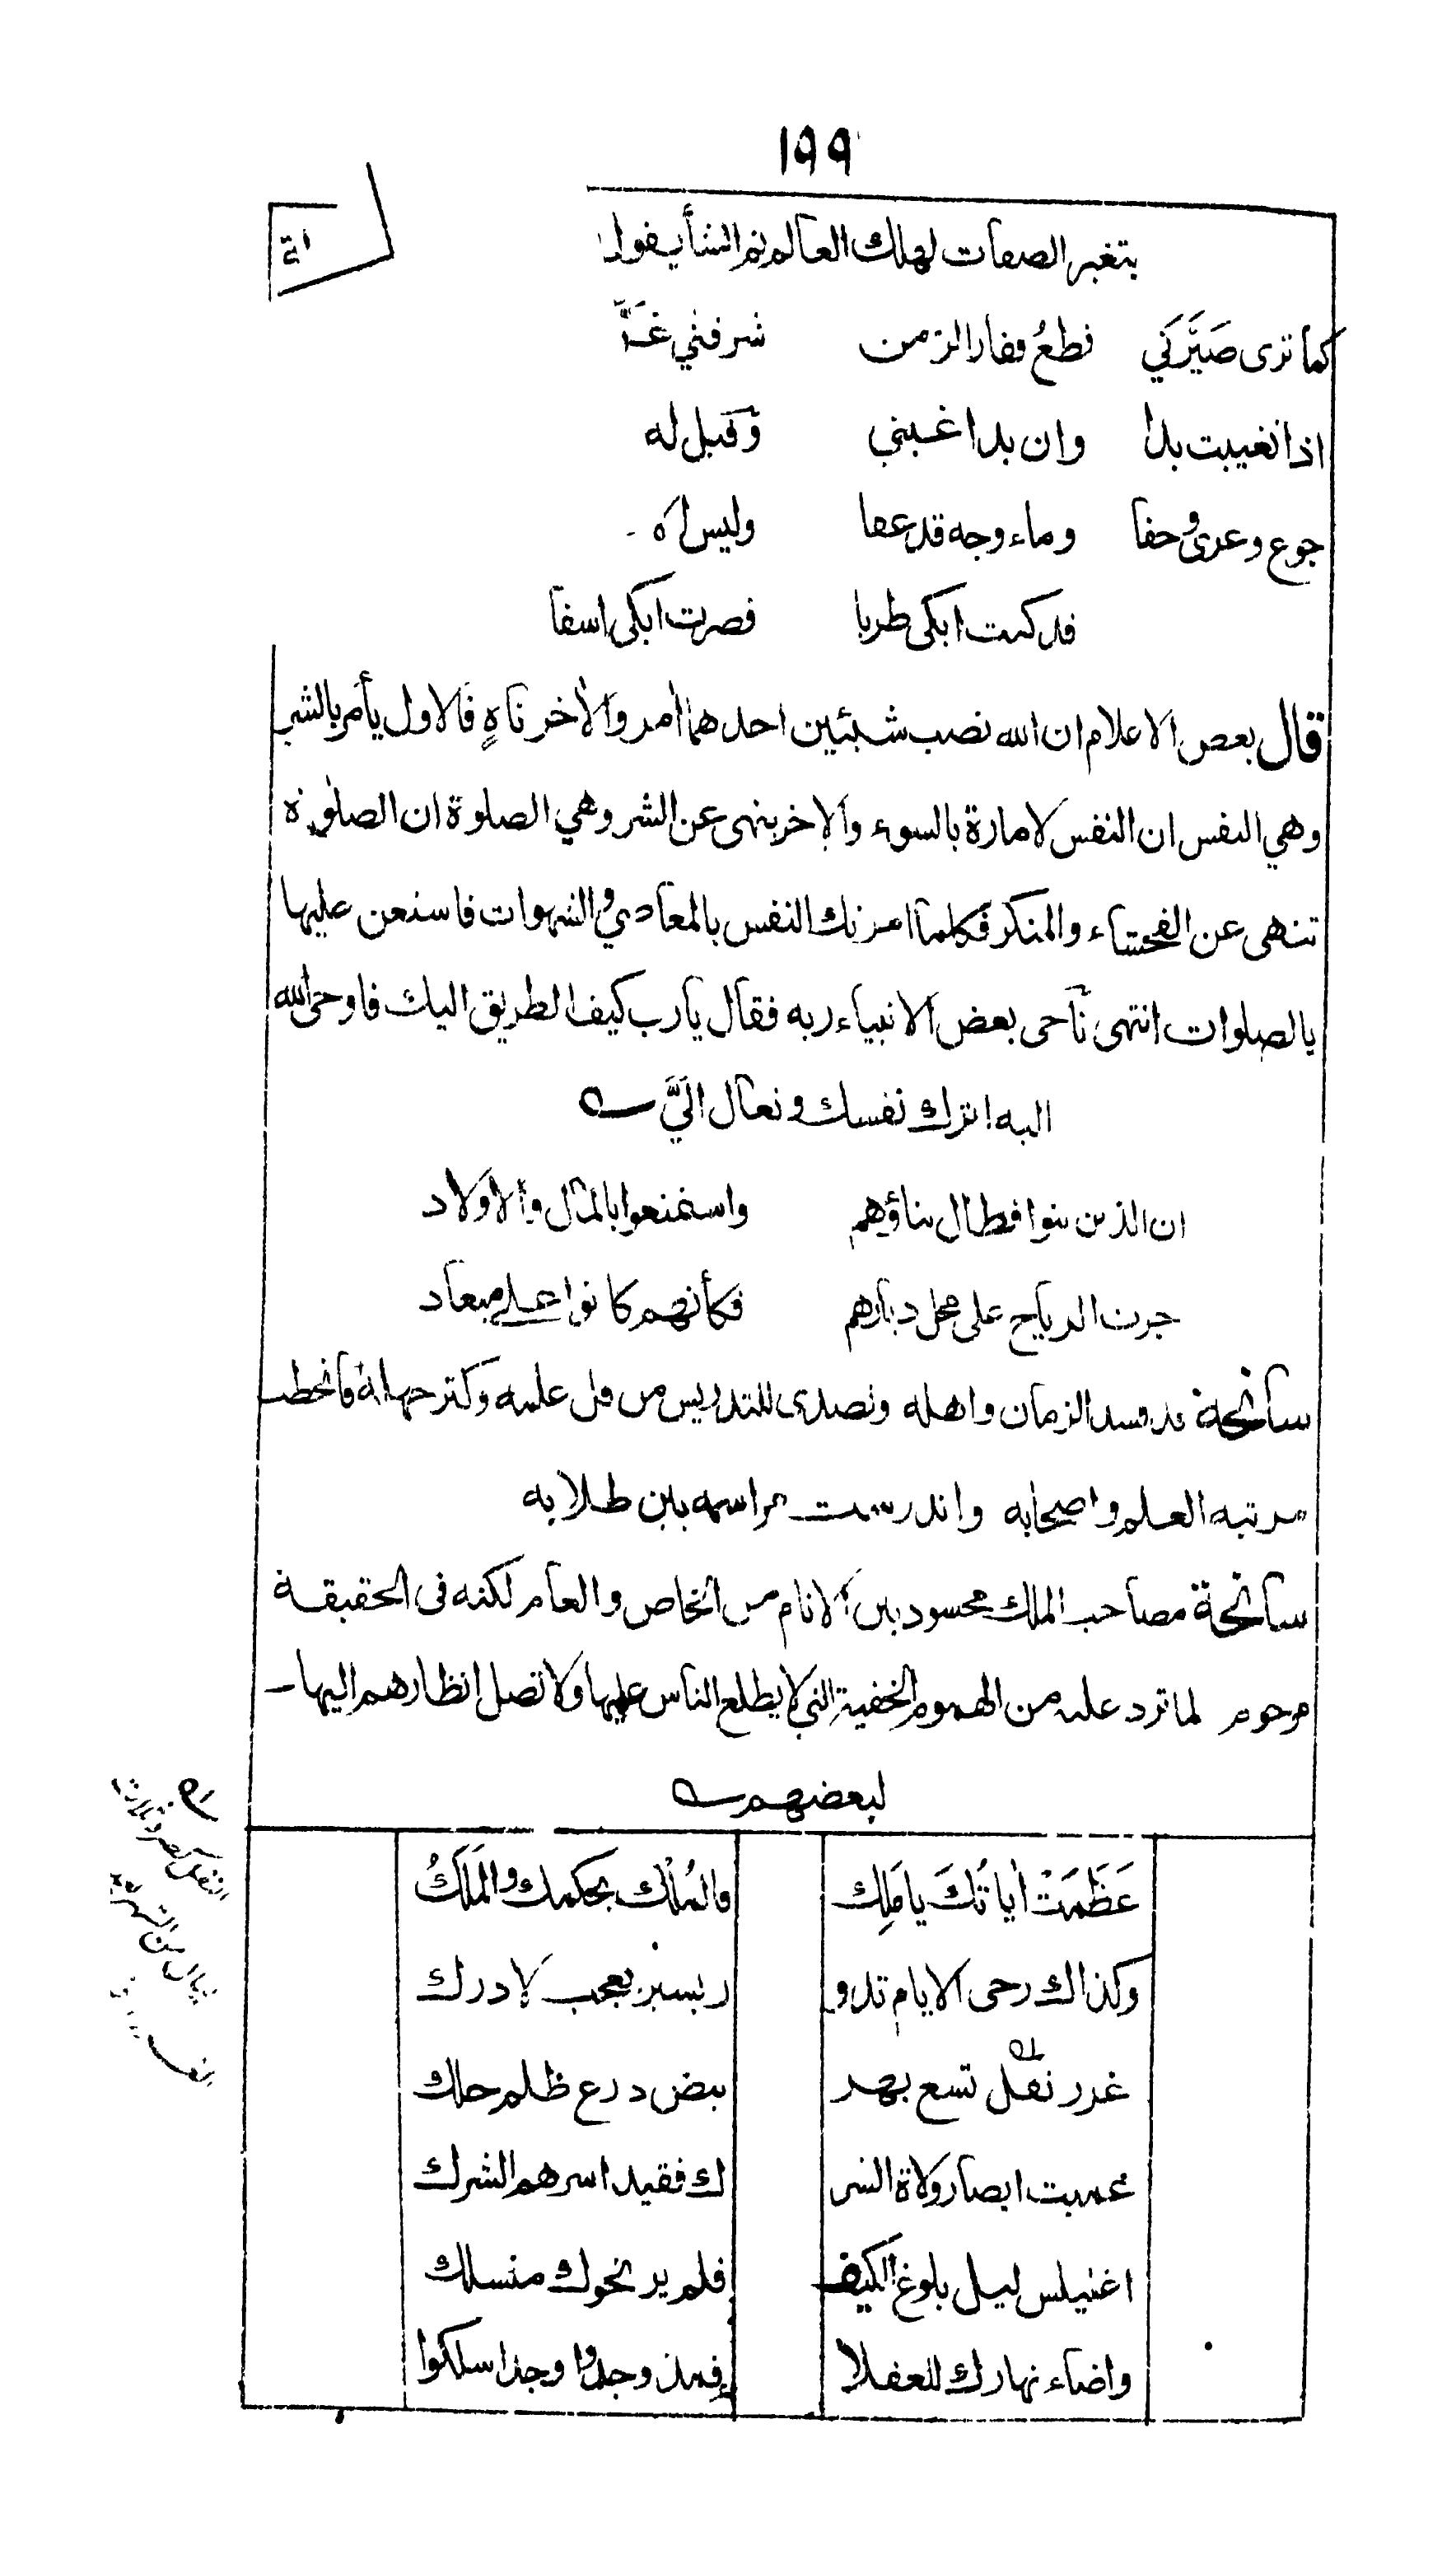 ١٩٩
بتغير الصفات لهلك العالم ثم انشأ يقول
كما ترى صَيَّرَني قطعُ قفار الزمن شرفني غـ
اذا تغيبت بدا وان بدا غيبني وقيل له
جوع وعرى وحفا وماء وجه قد عفا وليس لاه
قد كنت ابكى طربا فصرت ابكى اسفا
قال بعض الاعلام ان الله نصب شيئين احدهما اٰمر والاٰخر ناهٍ فالاول يأمر بالشر
وهي النفس ان النفس لامارة بالسوء والاخر ينهى عن الشر وهي الصلوة ان الصلوة
تنهى عن الفحشاء والمنكر فكلما امرتك النفس بالمعاصي والشهوات فاستعن عليها
بالصلوات انتهى ناجى بعض الانبياء ربه فقال يا رب كيف الطريق اليك فاوحى الله
اليه اترك نفسك وتعال اليَّ
ان الذين بنوا فطال بناؤهم واستمتعوا بالمال والاولاد
جرت الرياح على محل ديارهم فكأنهم كانوا على ميعاد
سانحة قد فسد الزمان واهله وتصدى للتدريس من قل علمه وكثر جهله فانحطت
مرتبه العلم واصحابه واندرست مراسمه بين طلابه
سانحة مصاحب الملك محسود بين الانام من الخاص والعام لكنه فى الحقيقة
مرحوم لما ترد عليه من الهموم الخفية التي لا يطلع الناس عليها ولا تصل انظارهم اليها
لبعضهم
عَظَمَتْ اٰياتُكَ يا مَلِك فالمُلْك بحكمك والمَلَكُ
وكذاك رحى الايام تدو ر بسير يعجب لا درك
غرر نفل تسع بهر بيض درع ظلم حلك
عميت ابصار ولاة الشر ك فقيد اسرهم الشرك
اغنيلس ليل بلوغ الكيف فلم ير نحوك منسلك
واضاء نهارك للعقلا فمذ وجدوا وجدا سلكوا